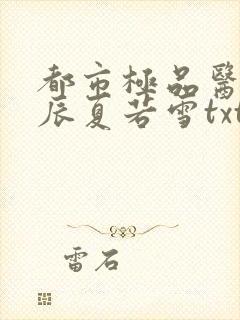 都市極品醫
辰夏若雪txt
雷石